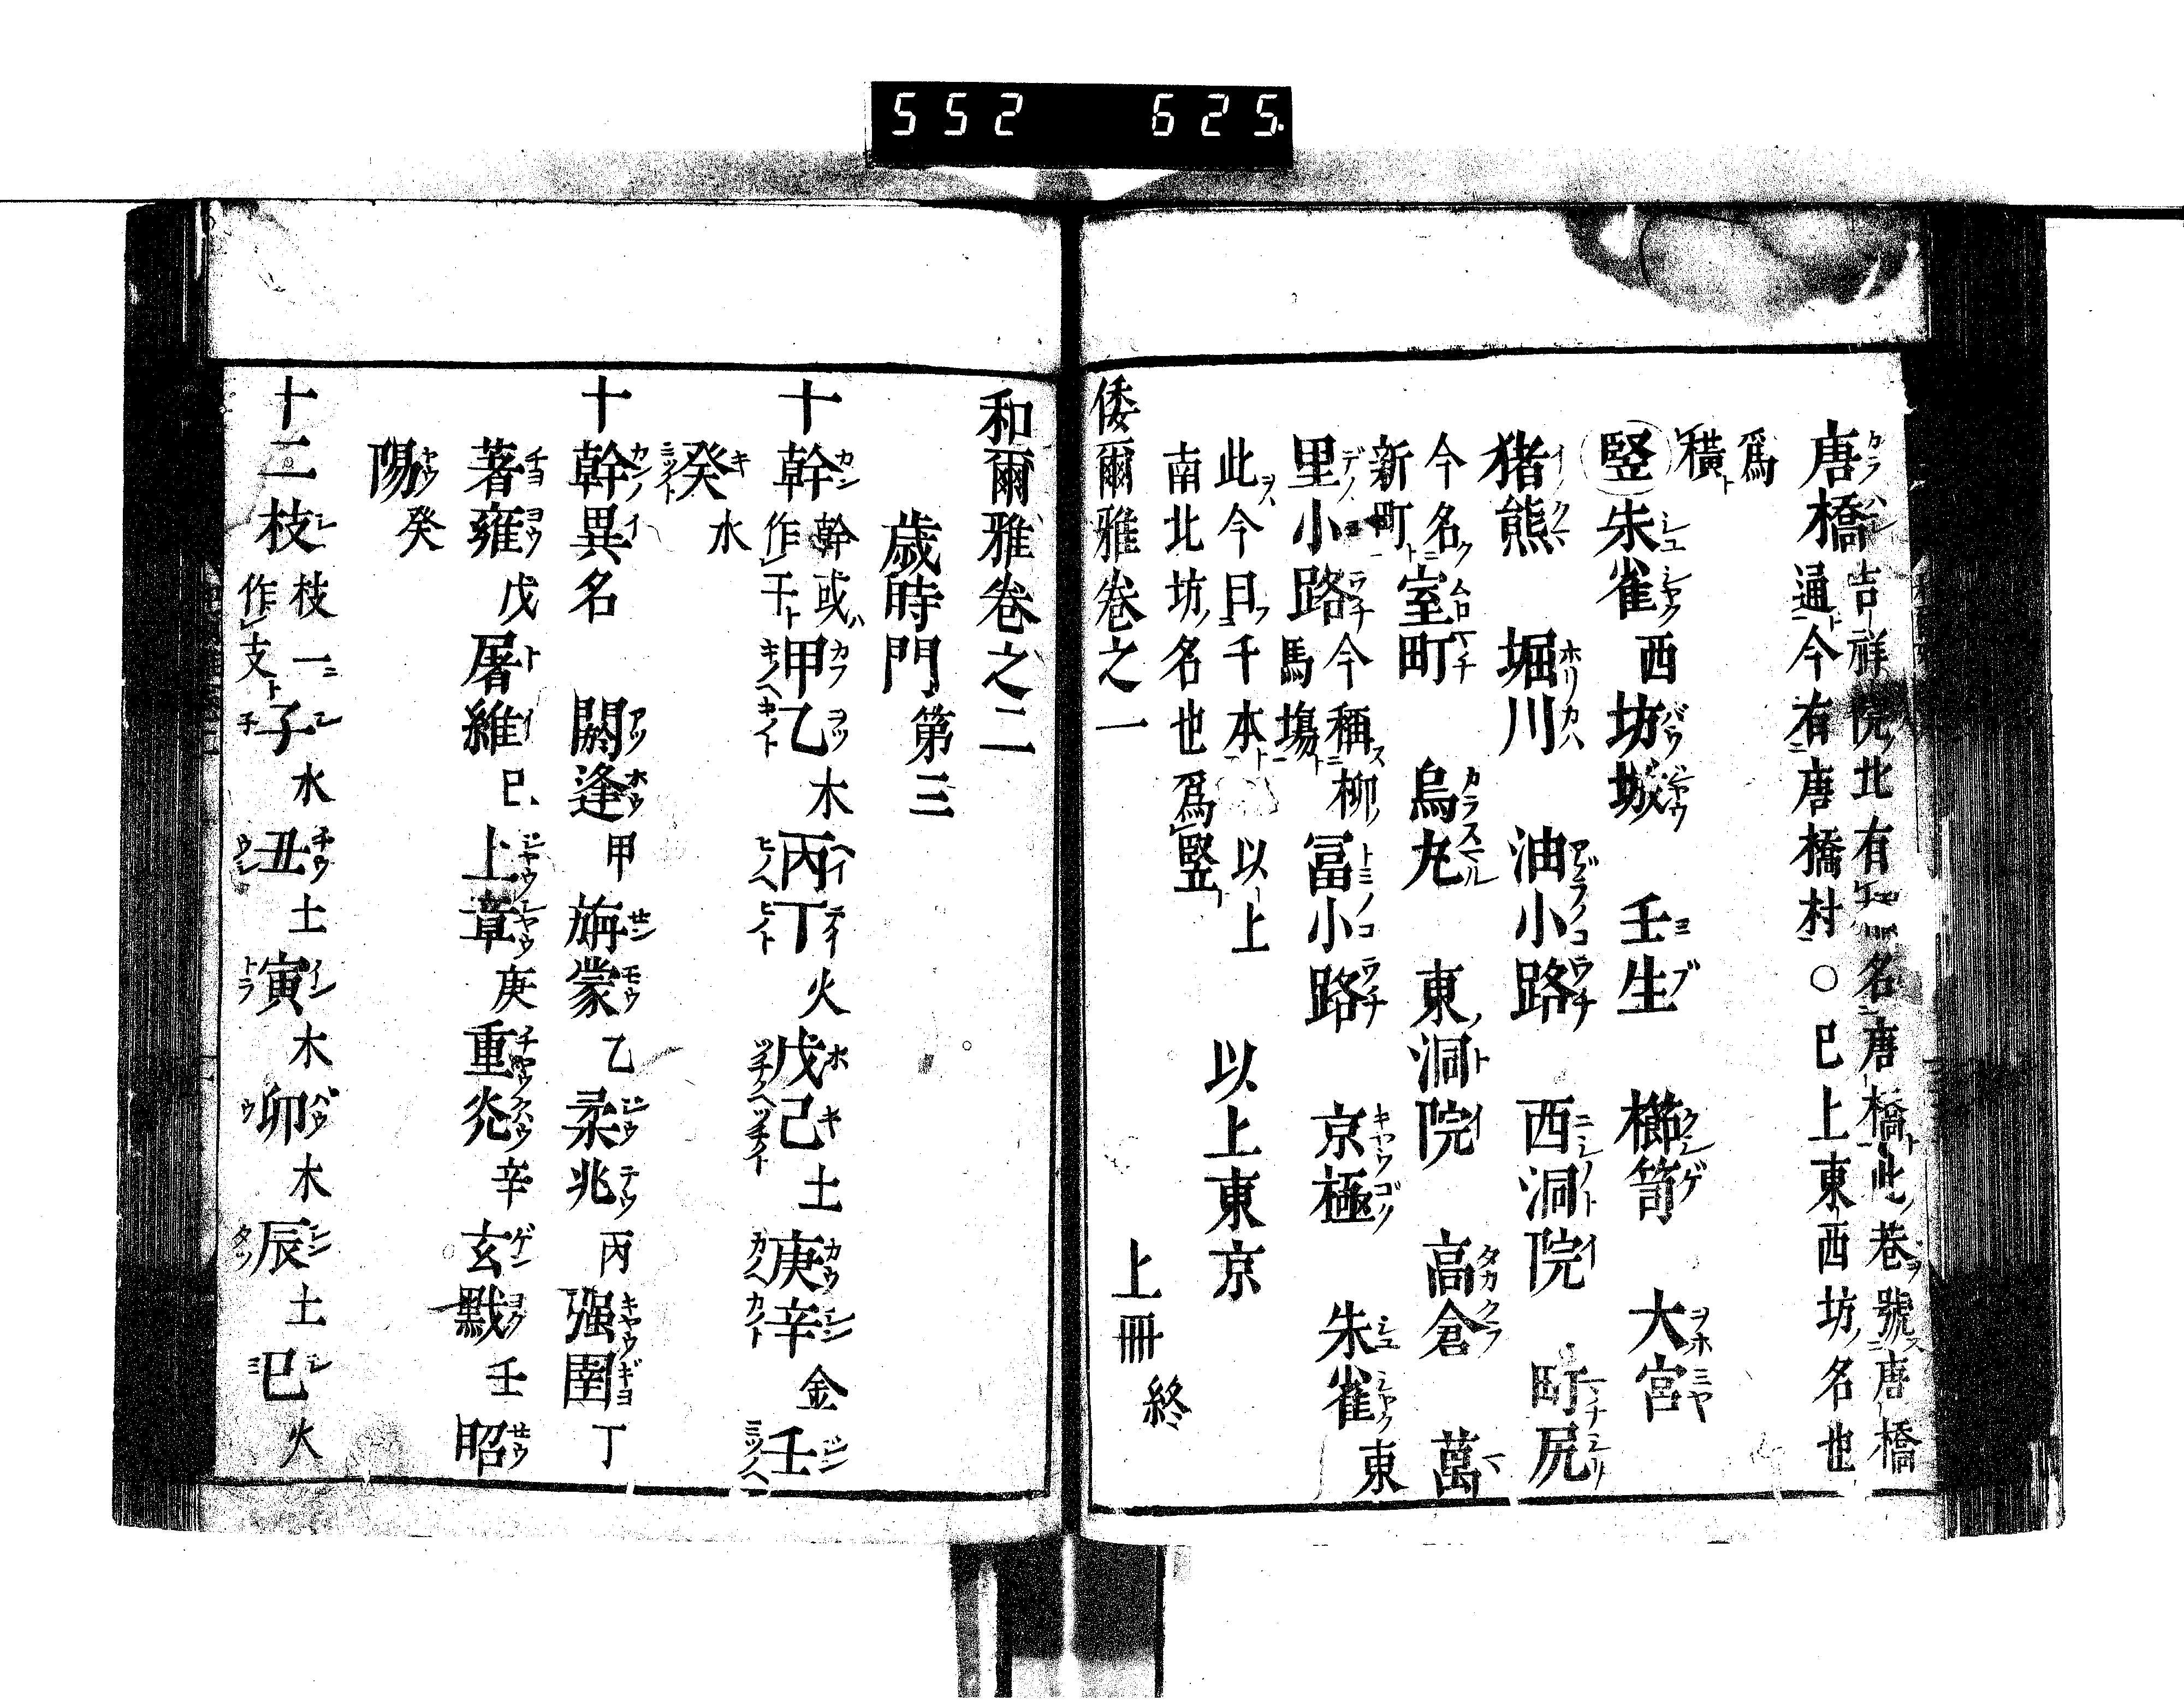 552 625.
唐橋 吉祥院北有 名唐橋此巷號唐橋
通今有唐橋村○巳上東西坊名也
爲
横
竪 朱雀 西 坊城 壬生 櫛笥 大宮
猪熊 堀川 油小路 西洞院 町尻
今名
新町 室町 烏丸 東洞院 高倉 萬
里小路 今稱柳
馬塲 冨小路 京極 朱雀 東
此今日千本 以上
南北坊名也爲竪 以上東京
倭爾雅卷之一 上冊終
和爾雅卷之二
歳時門第三
十幹 幹或
作干 甲乙 木 丙丁 火 戊己 土 庚辛 金 壬
癸 水
十幹異名 閼逢 甲 旃蒙 乙 柔兆 丙 强圉 丁
著雍 戊 屠維 巳 上章 庚 重光 辛 玄黓 壬 昭
陽 癸
十二枝 枝一
作支 子 水 丑 土 寅 木 卯 木 辰 土 巳 火